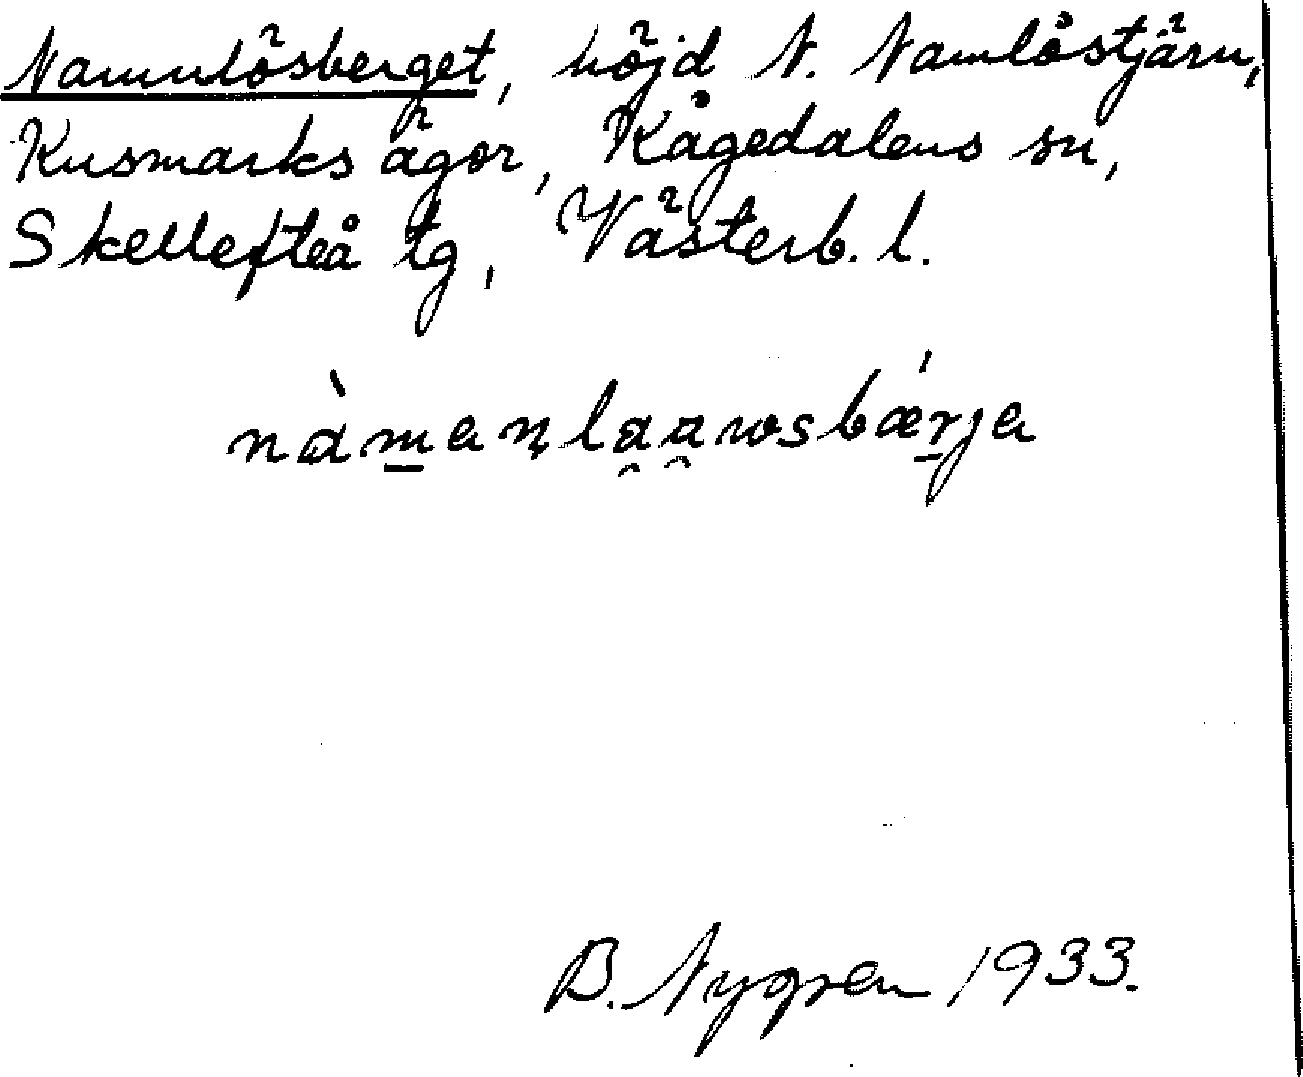 Namnlösberget, höjd N. Namlöstjärn,
Kusmarks ägor, Kågedalens sn,
Skellefteå tg, Västerb. l.
nàmanlaawsbǽrja
B. Nygren 1933.